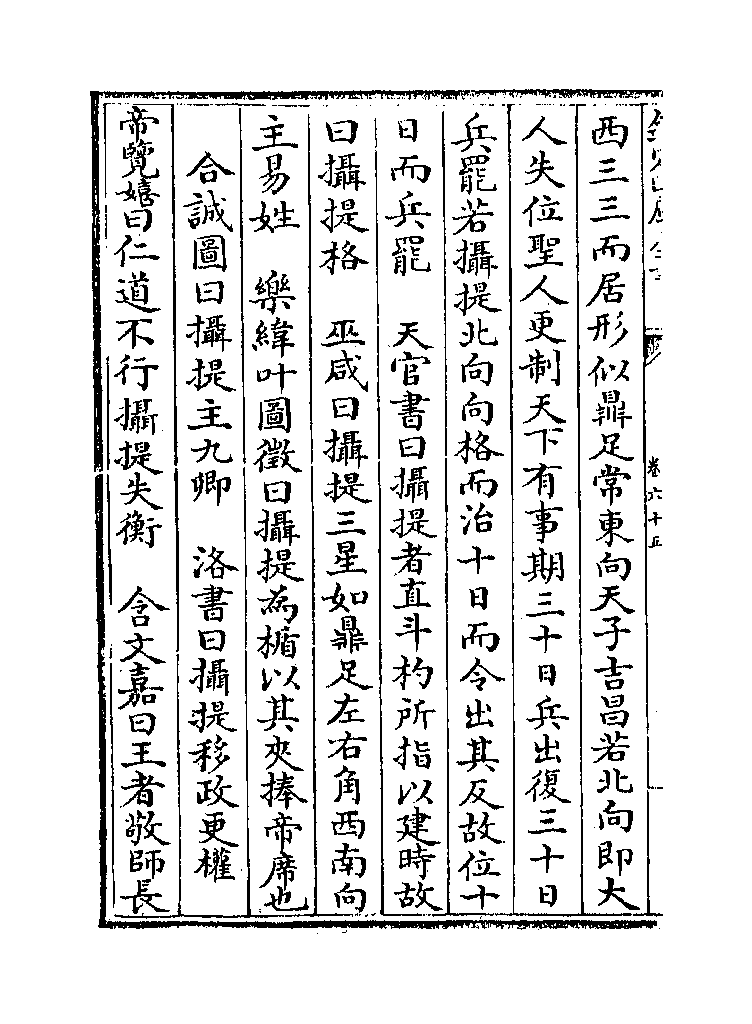 卷六十五
西三三而居形似鼎足常東向天子吉昌若北向即大
人失位聖人更制天下有事期三十日兵出復三十日
兵罷若攝提北向向格而治十日而令出其反故位十
日而兵罷　天官書曰攝提者直斗杓所指以建時故
曰攝提格　巫咸曰攝提三星如鼎足左右角西南向
主易姓　樂緯叶圖徵曰攝提為楯以其夾捧帝席也
合誠圖曰攝提主九卿　洛書曰攝提移政更權
帝覽嬉曰仁道不行攝提失衡　含文嘉曰王者敬師長